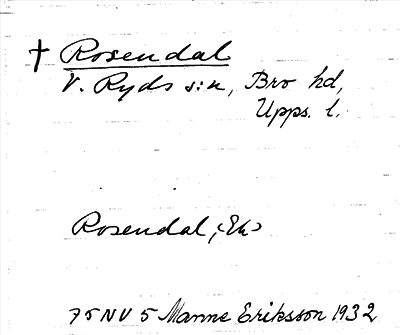 † Rosendal
V. Ryds s:n, Bro hd,
Upps. l.
Rosendal, <Ek>
75 NV 5 Manne Eriksson 1932